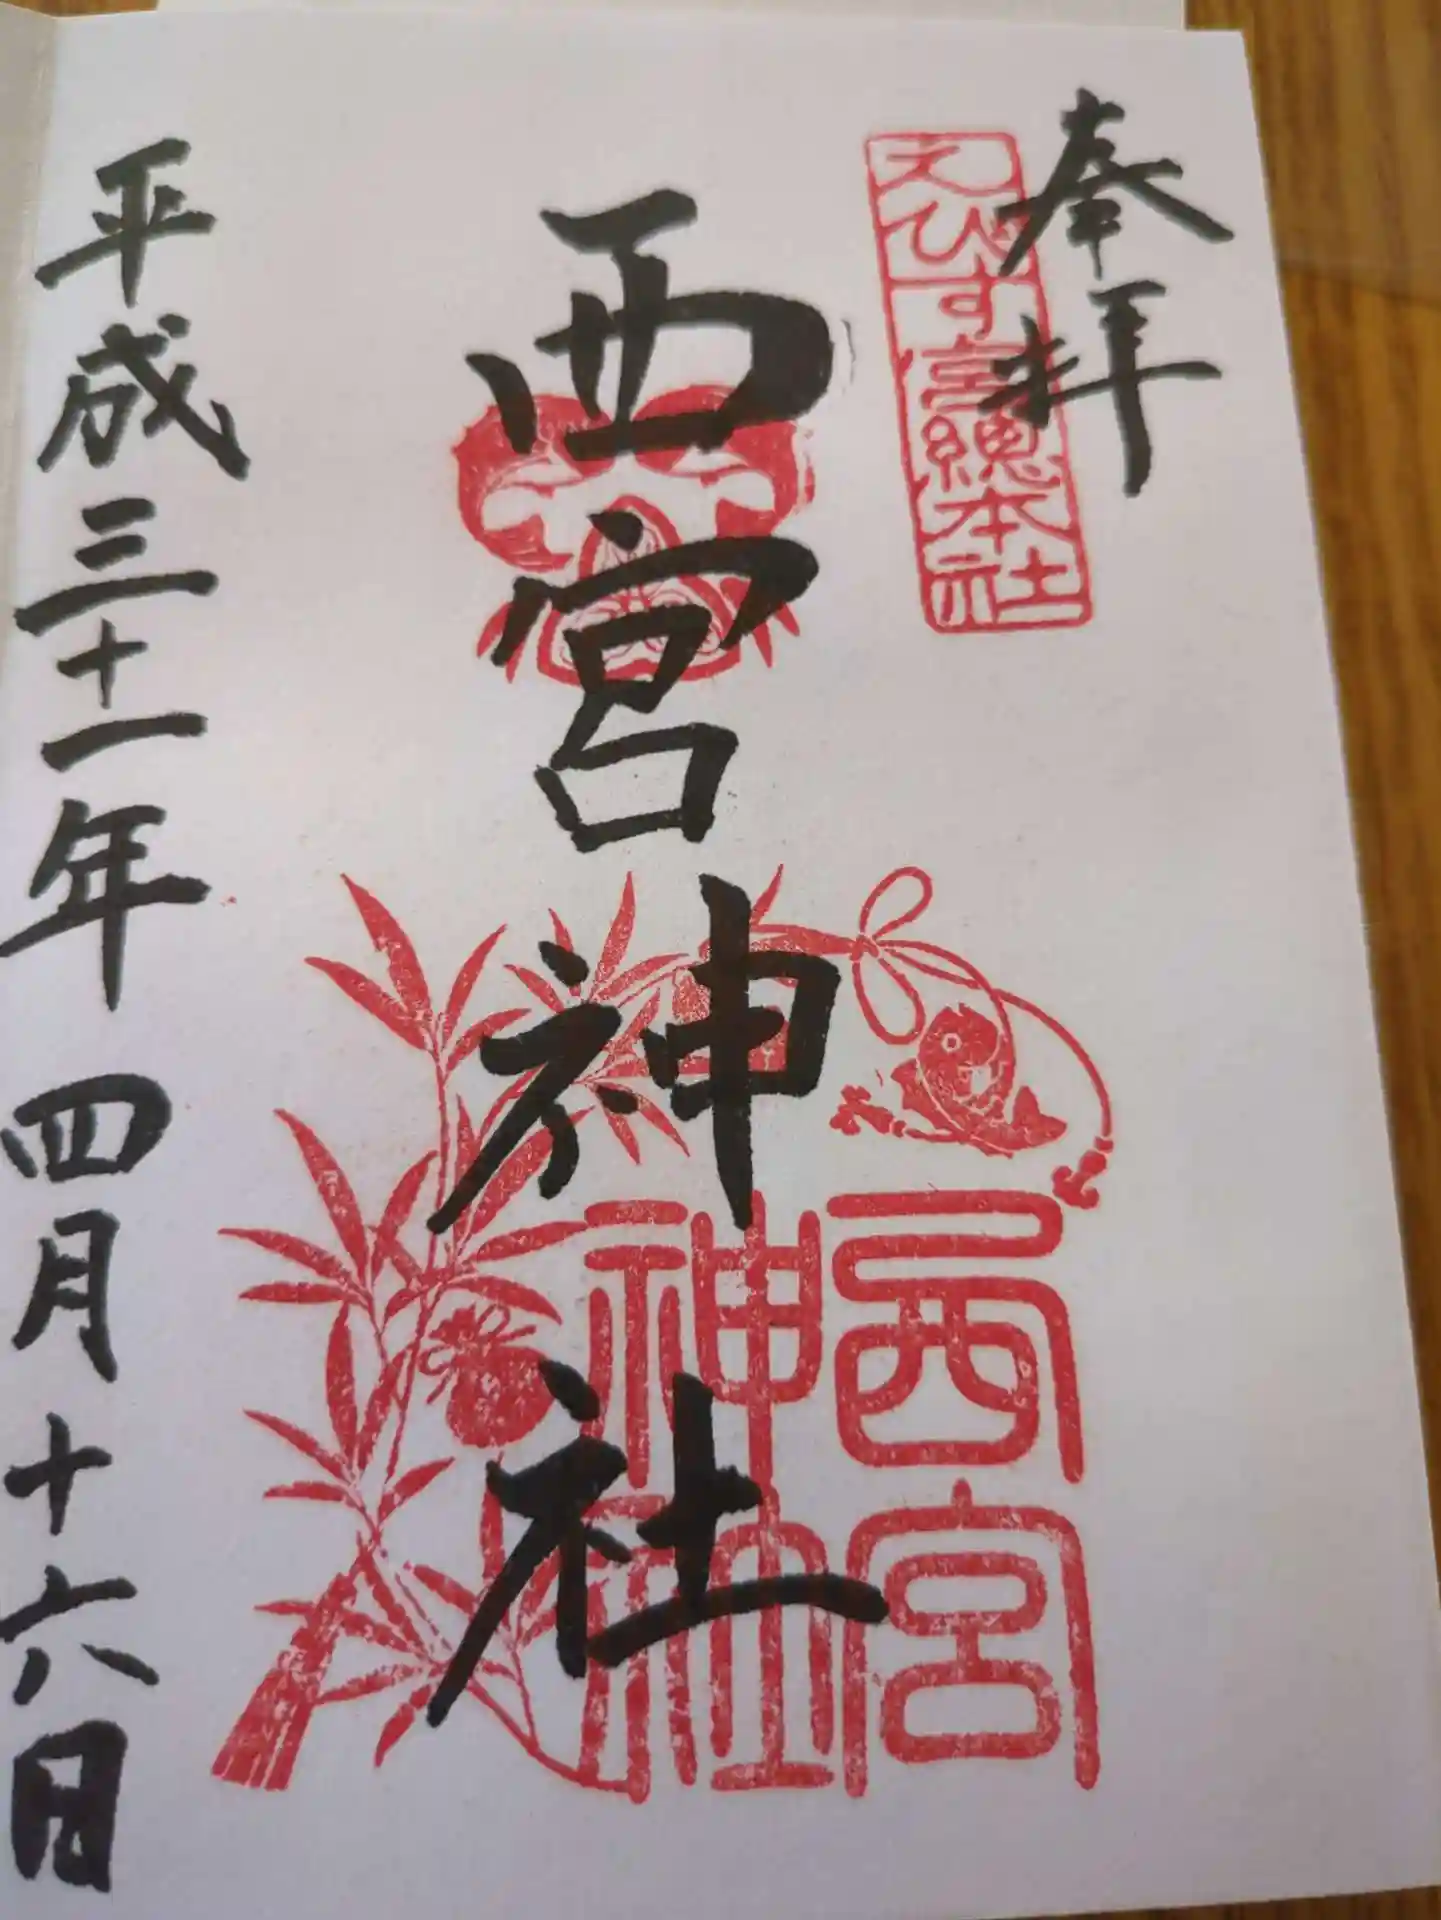 奉拝
えびす宮總本社
西宮神社
西宮
神社
平成三十一年四月十六日